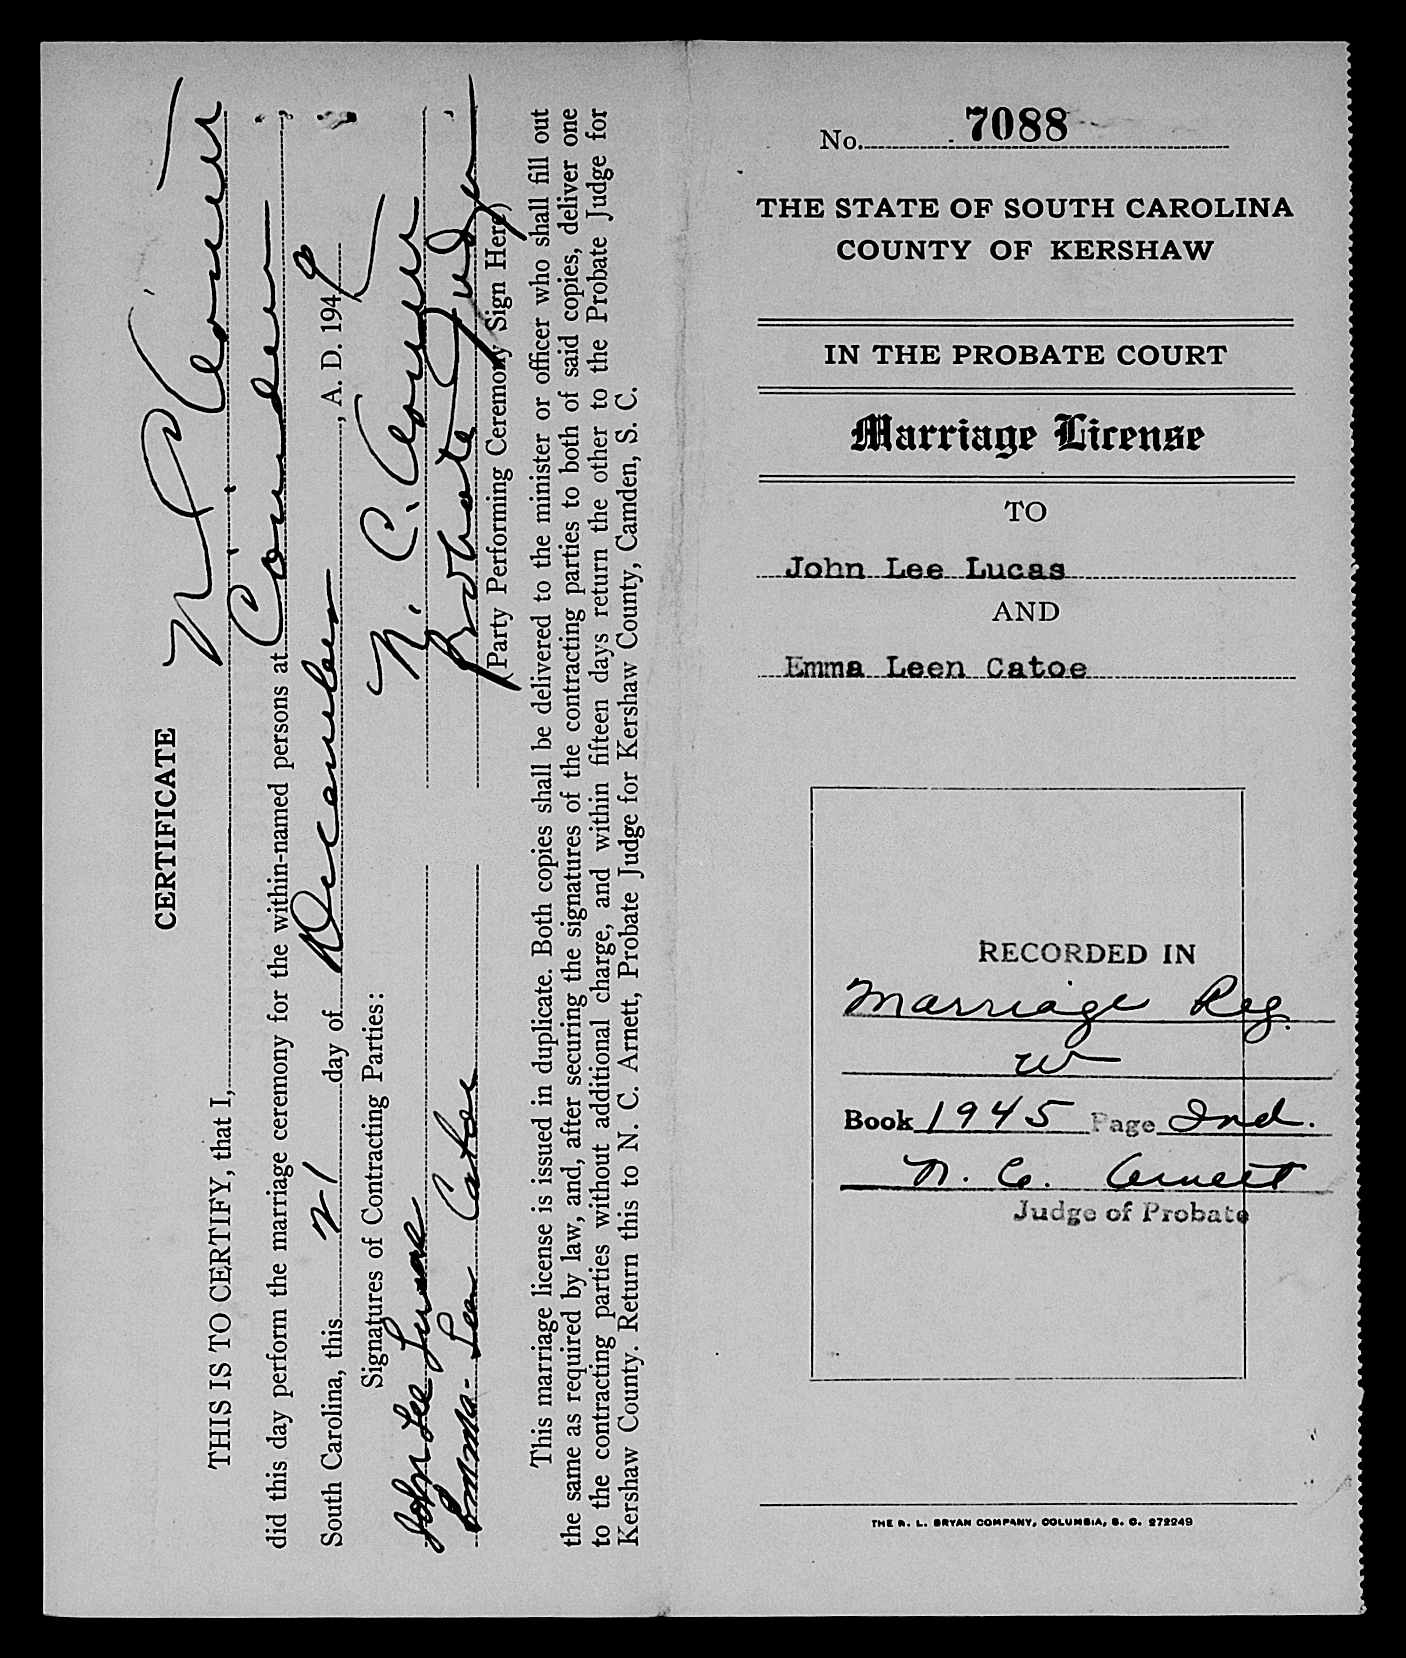 CERTIFICATE
THIS IS TO CERTIFY, that I, N C Arnett
did this day perform the marriage ceremony for the within-named persons at Camden,
South Carolina, this 21 day of December, A. D. 1949
Signatures of Contracting Parties:
John Lee Lucas
N. C. Arnett
Emma Leen Catoe
Probate Judge
(Party Performing Ceremony Sign Here)
This marriage license is issued in duplicate. Both copies shall be delivered to the minister or officer who shall fill out
the same as required by law, and, after securing the signatures of the contracting parties to both of said copies, deliver one
to the contracting parties without additional charge, and within fifteen days return the other to the Probate Judge for
Kershaw County. Return this to N. C. Arnett, Probate Judge for Kershaw County, Camden, S. C.
No. 7088
THE STATE OF SOUTH CAROLINA
COUNTY OF KERSHAW
IN THE PROBATE COURT
Marriage License
TO
John Lee Lucas
AND
Emma Leen Catoe
RECORDED IN
Marriage Reg.
W
Book 1945 Page Ind.
N. C. Arnett
Judge of Probate
THE R. L. BRYAN COMPANY, COLUMBIA, S. C. 272249